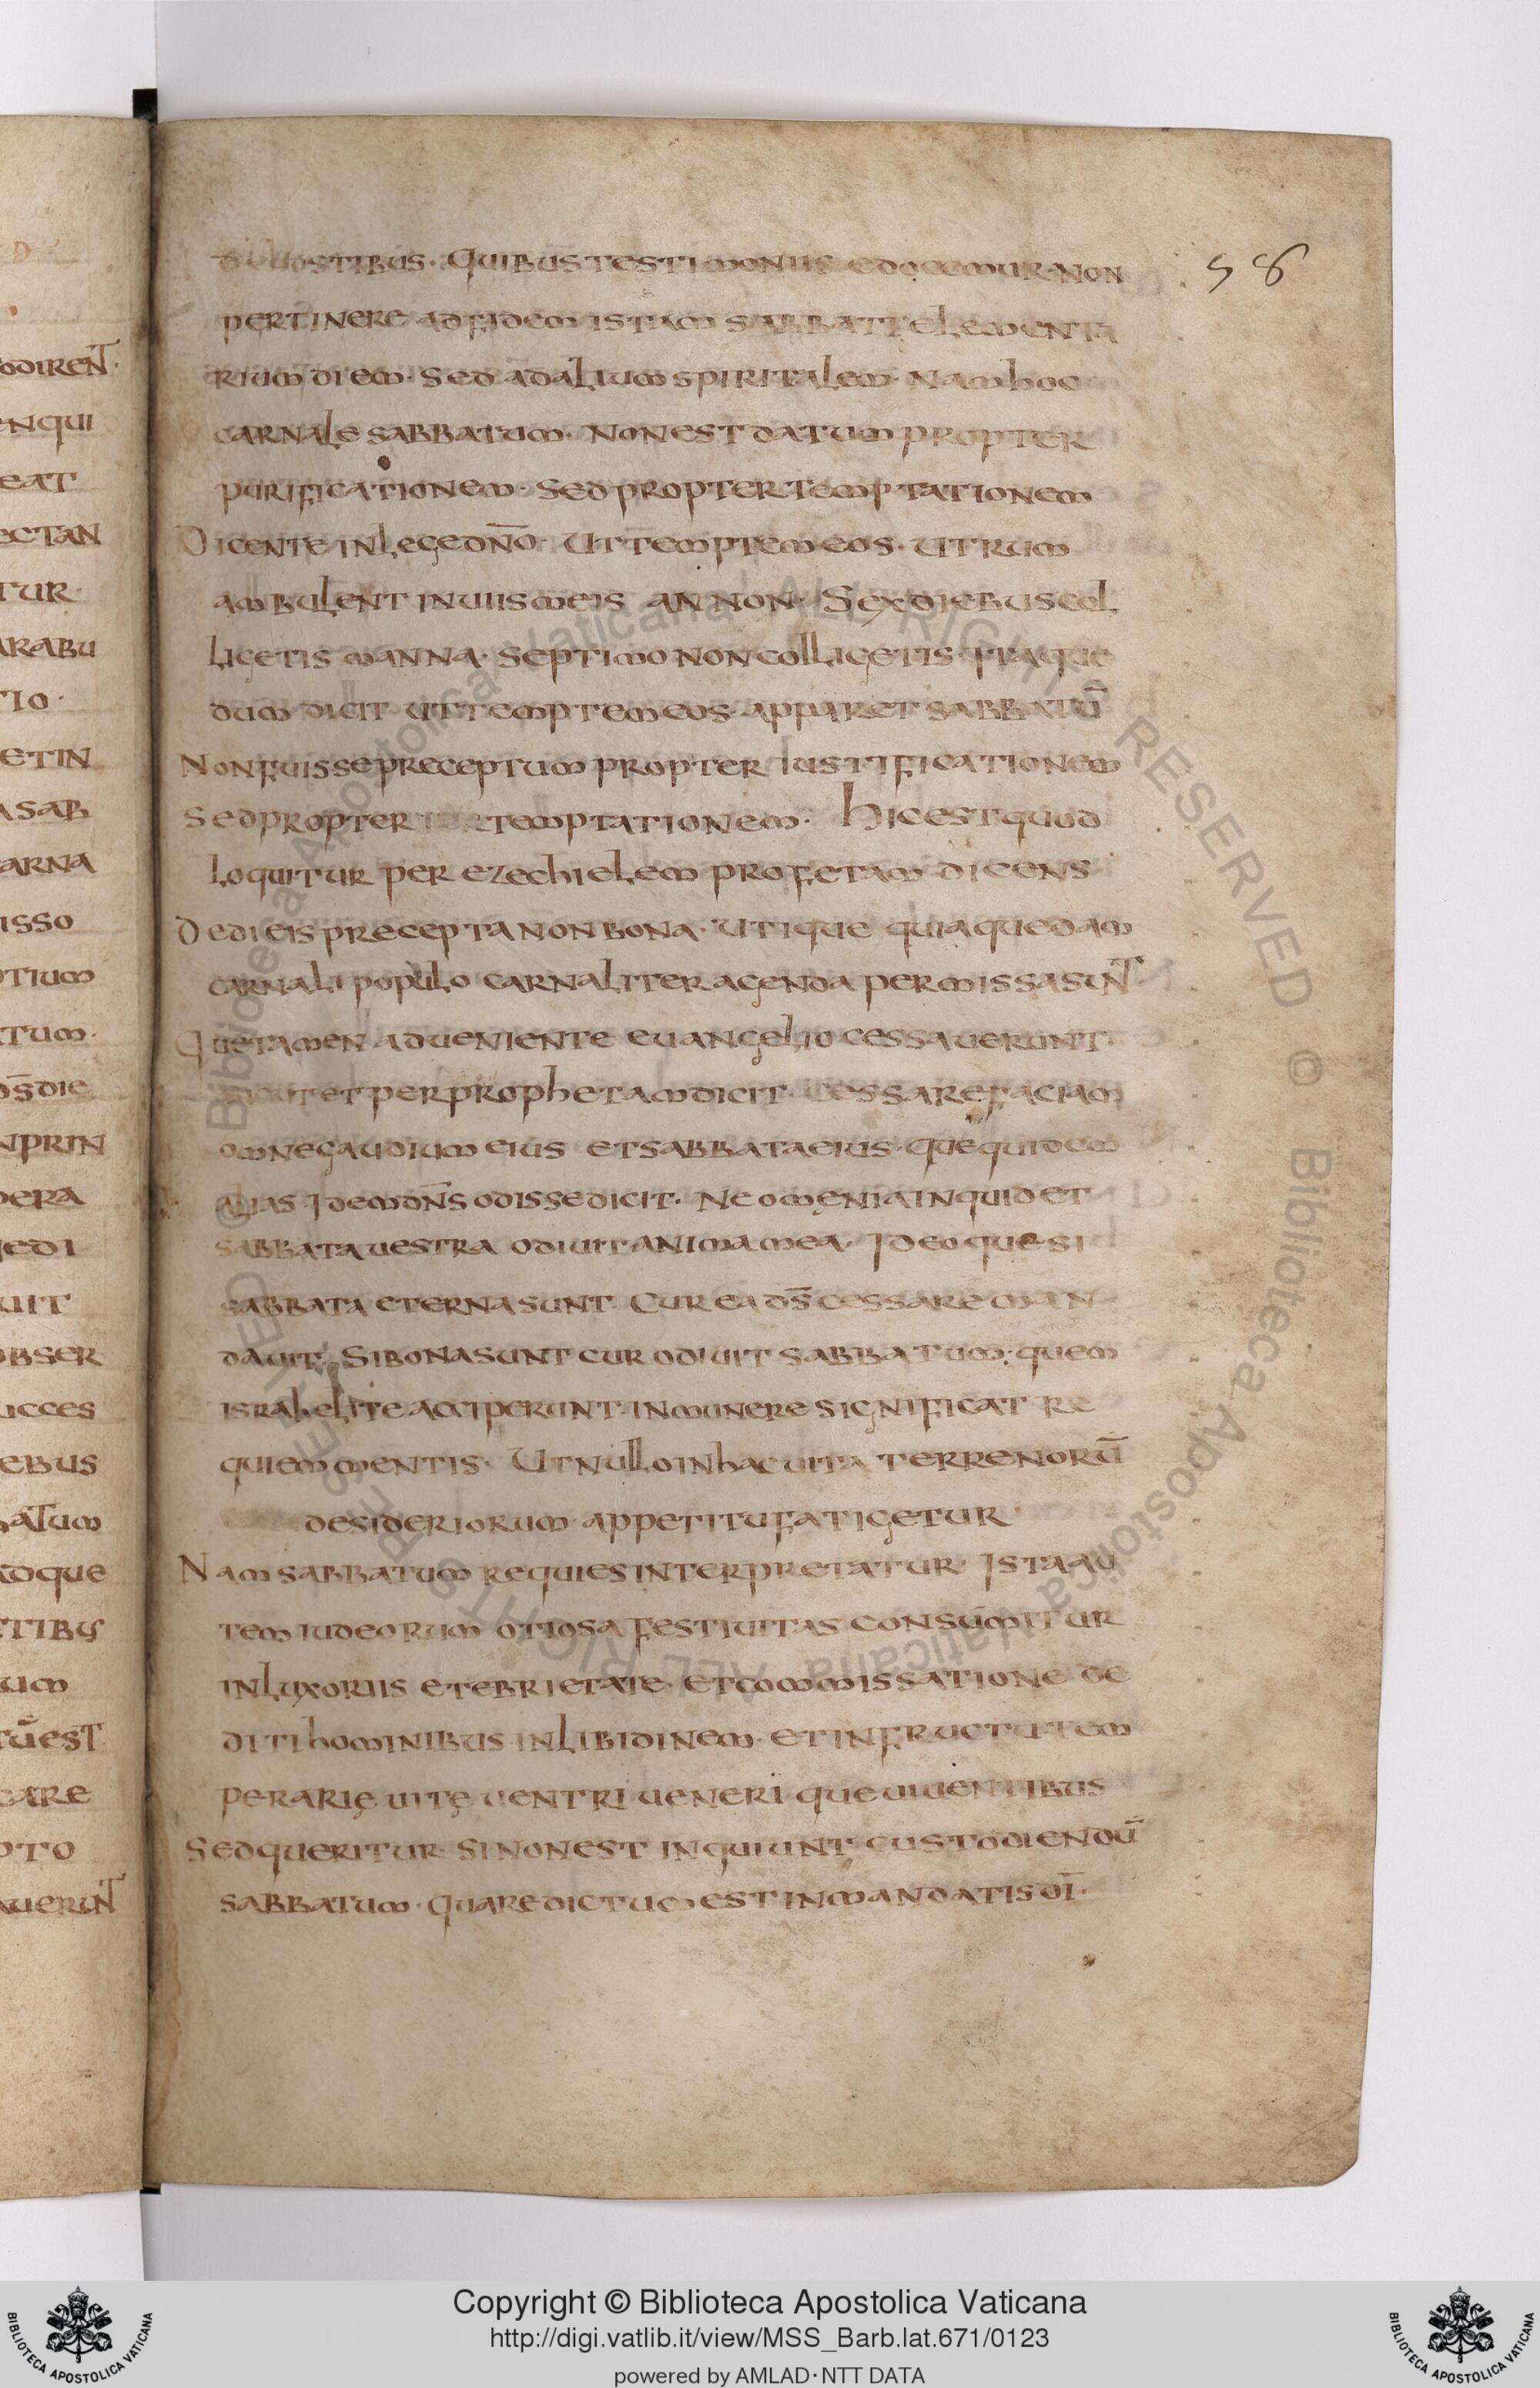 odirent̄
enqui
eat
ectan
tur
arabu
tio·
etin
asab
arna
isso
otium
tum·
os̄die
nprin
pera
iedi
uit
obser
ucces
ebus
batum
adque
tibus
um
tūest
care
pto
auerunt
58
hostibus· Quibus testimoniis edocemur· non
pertinere ad fidem istam sabbati elementa
rium diem· sed ad alium spiritalem· Nam hoc
carnale sabbatum· non est datum propter
purificationem· sed propter temptationem
Dicente in lege dn̄o· Ut temptem eos· utrum
ambulent in uiis meis an non· Sex diebus col
ligetis manna· septimo non colligetis· itaque
dum dicit ut temptem eos· apparet sabbatū
Non fuisse preceptum propter iustificationem
Sed propter temptationem· Hic est quod
loquitur per ezechielem profetam dicens
Dedi eis precepta non bona· Utique quia quedam
carnali populo carnaliter agenda permissa sunt·
Que tamen adueniente euangelio cessauerunt·
sicut et per prophetam dicit· Cessare faciam
omne gaudium eius et sabbata eius· que quidem
alias idem dn̄s odisse dicit· Neomenia inquid et
sabbata uestra odiuit anima mea· Ideoque si
sabbata eterna sunt Cur ea ds̄ cessare man
dauit· Si bona sunt cur odiuit sabbatum· quem
israhelite acciperunt· in munere significat re
quiem mentis· Ut nullo in hac uita terrenorū
desideriorum appetitu fatigetur
Nam sabbatum requies interpretatur· Ista au
tem iudeorum otiosa festiuitas consūmitur
in luxoriis et ebrietate· et commissatione de
diti hominibus in libidinem· et in fructu tem
perarie̜ uite̜ uentri uenerique uiuentibus
Sed queritur· si non est inquiunt custodiendū
sabbatum· quare dictum est in mandatis dī·
Copyright © Biblioteca Apostolica Vaticana
http://digi.vatlib.it/view/MSS_Barb.lat.671/0123
powered by AMLAD·NTT DATA
BIBLIOTECA APOSTOLICA VATICANA
BIBLIOTECA APOSTOLICA VATICANA